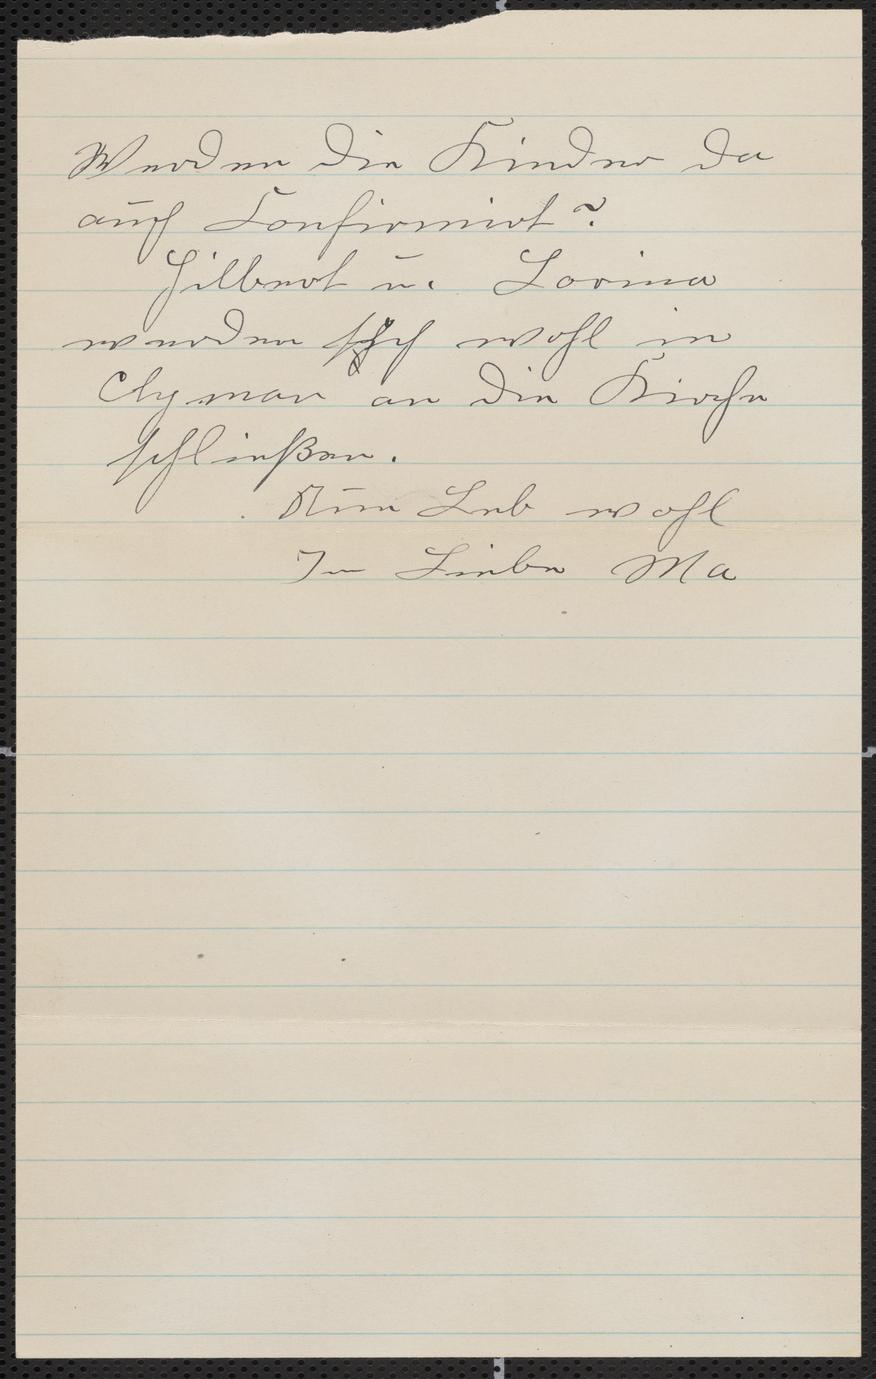 Werden die Kinder da
auch Confirmirt?
Gilbert u. Lorina
werden sich wohl in
Clyman an die Kirche
schließen.
Nun Leb wohl
In Liebe Ma